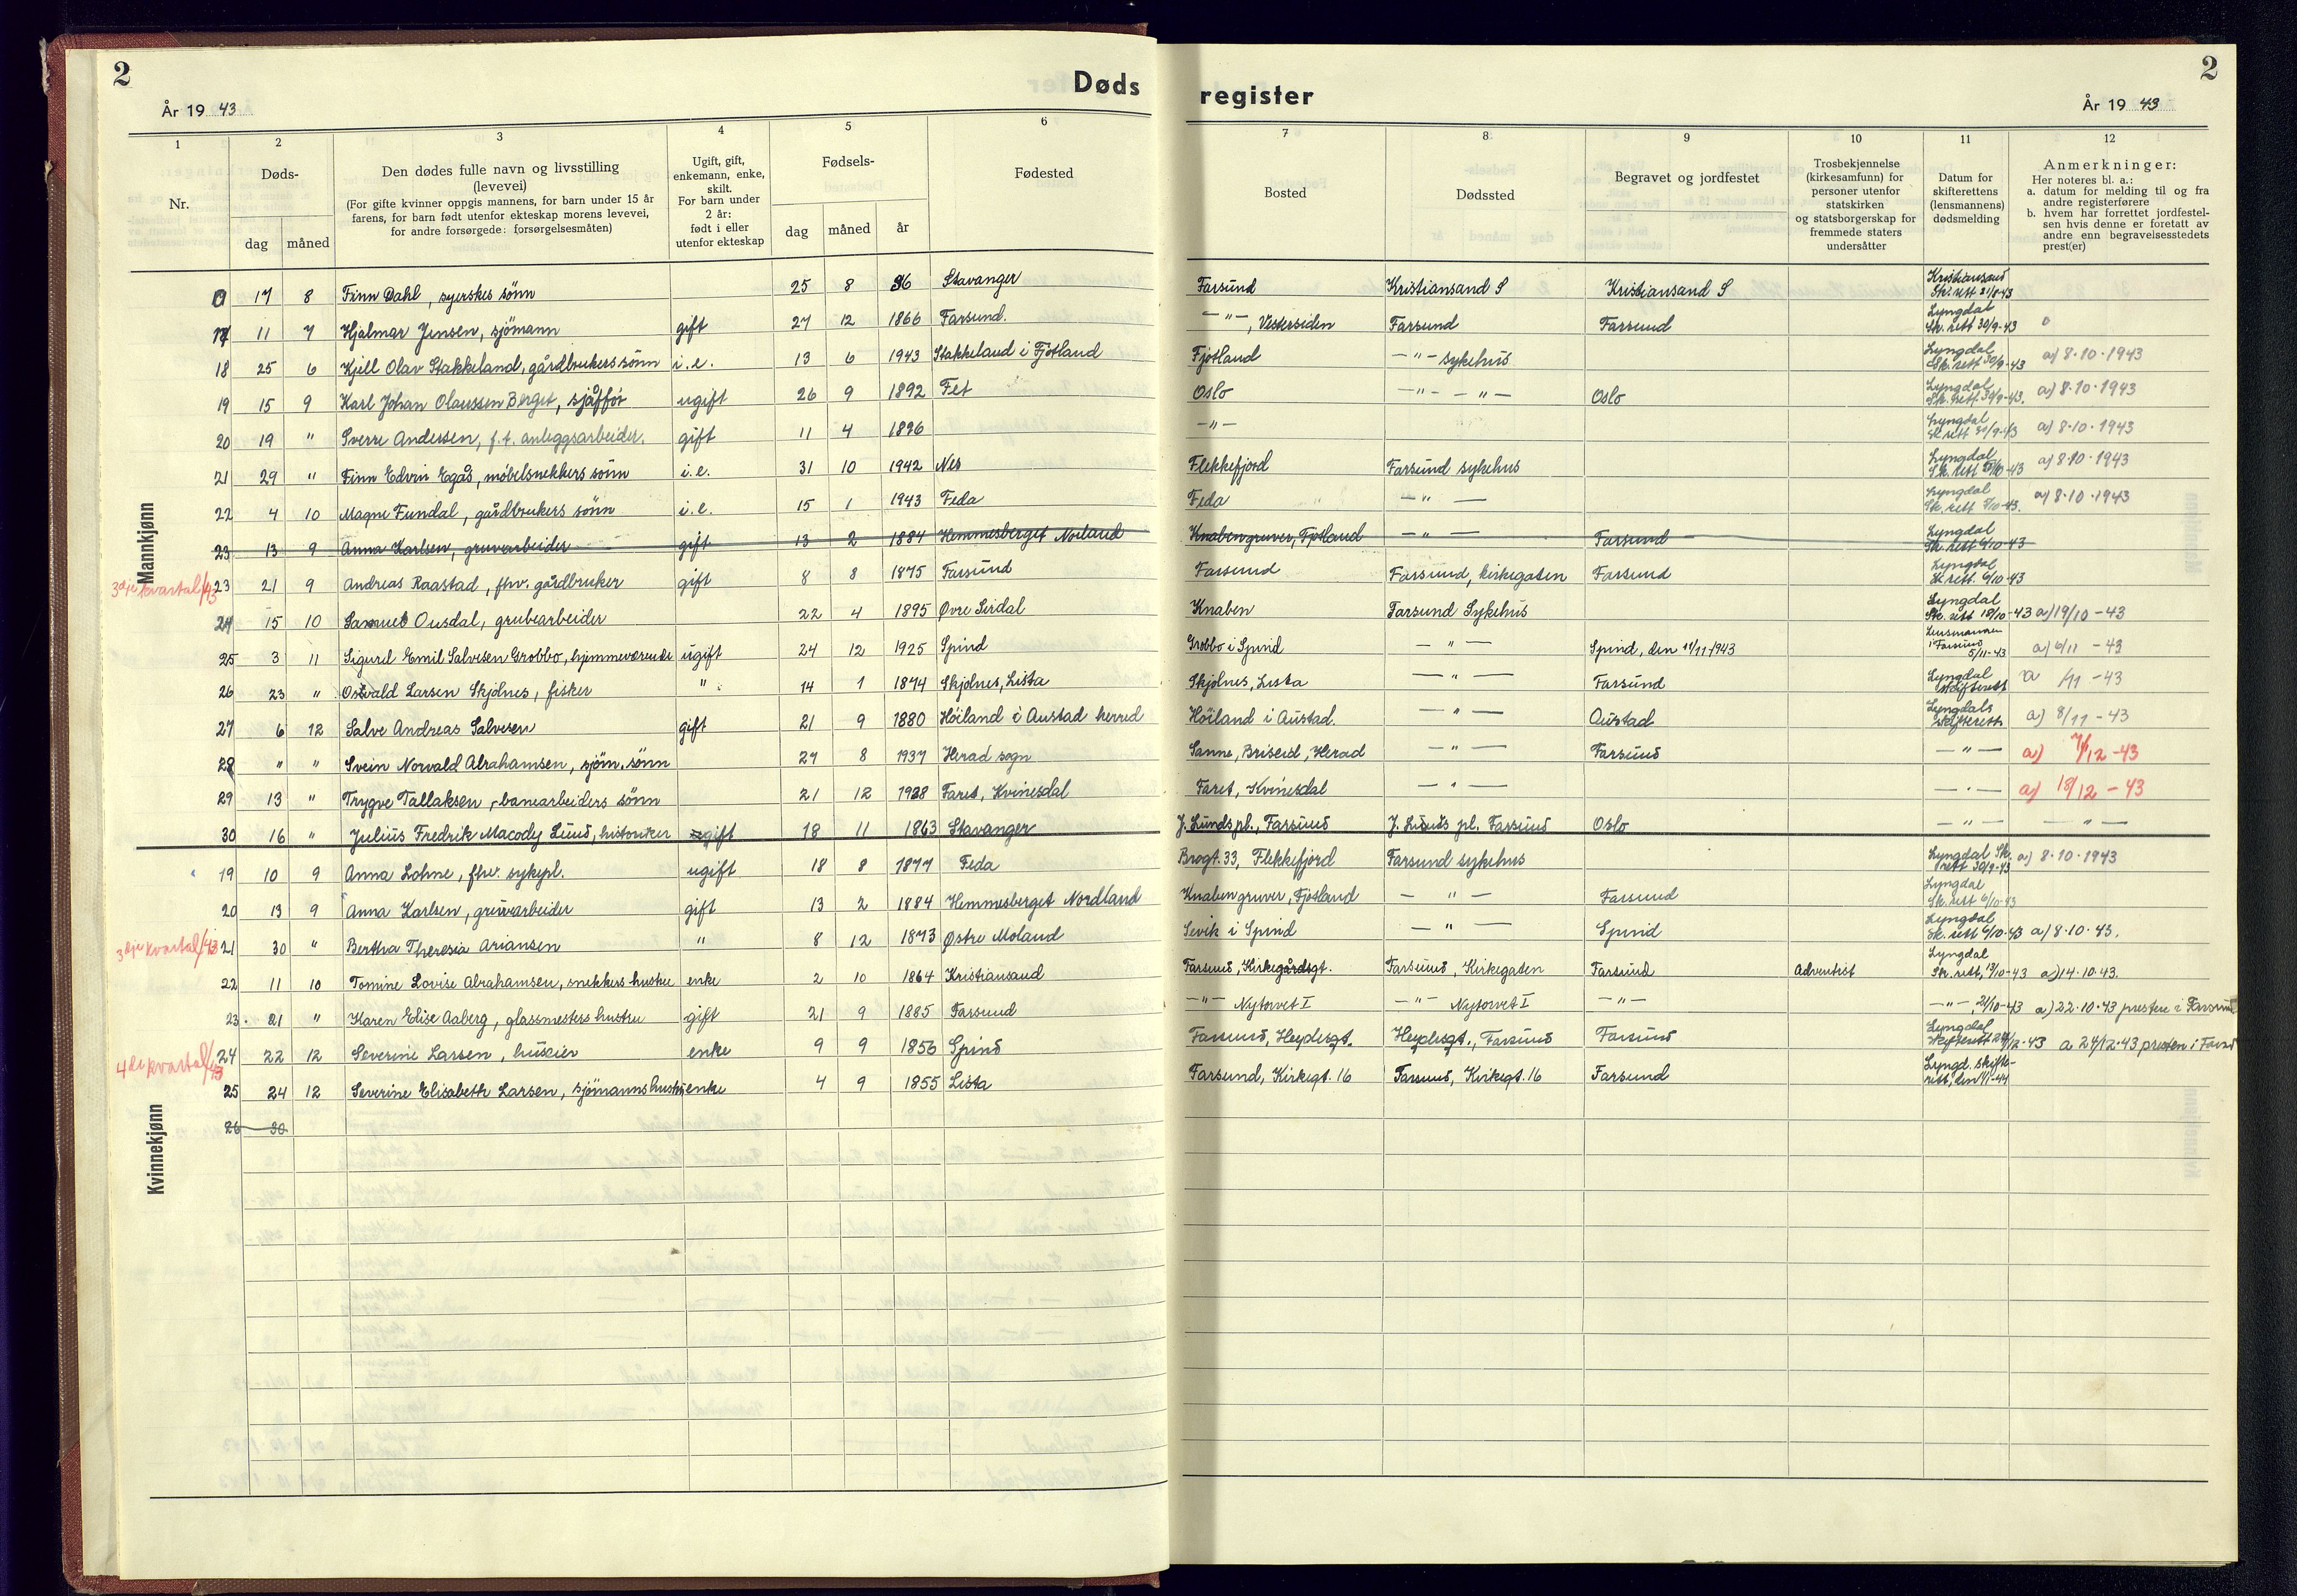 2
År 1943
Døds
1 2 3 4 5 6
Nr.
Døds-
dag måned
Den dødes fulle navn og livsstilling
(levevei)
(For gifte kvinner oppgis mannens, for barn under 15 år
farens, for barn født utenfor ekteskap morens levevei,
for andre forsørgede: forsørgelsesmåten)
Ugift, gift,
enkemann, enke,
skilt.
For barn under
2 år:
født i eller
utenfor ekteskap
Fødsels-
dag måned år
Fødested
register
2
År 1943
7 8 9 10 11 12
Bosted
Dødssted
Begravet og jordfestet
Trosbekjennelse
(kirkesamfunn) for
personer utenfor
statskirken
og statsborgerskap for
fremmede staters
undersåtter
Datum for
skifterettens
(lensmannens)
dødsmelding
Anmerkninger:
Her noteres bl. a.:
a. datum for melding til og fra
andre registerførere
b. hvem har forrettet jordfestel-
sen hvis denne er foretatt av
andre enn begravelsesstedets
prest(er)
Mannkjønn
0 17 8 Finn Dahl, syerskes sönn 25 8 36 Stavanger Farsund Kristiansand S Kristiansand S Kristiansand Sk. rett 21/8-43
17 11 7 Hjalmar Jensen, sjömann gift 27 12 1866 Farsund. —"—, Vestersiden Farsund Farsund Lyngdal Sk. rett 30/9-43
18 25 6 Kjell Olav Stakkeland, gårdbrukers sönn i.e. 13 6 1943 Stakkeland i Fjotland Fjotland —"— sykehus Lyngdal Sk. rett 30/9-43 a) 8.10.1943
19 15 9 Karl Johan Olaussen Berget, sjåfför ugift 26 9 1892 Fet Oslo —"— —"— Oslo Lyngdal Sk. rett 30/9-43. a) 8.10.1943
20 19 " Sverre Andersen, f.t. anleggsarbeider. gift 11 4 1896 —"— Lyngdal Sk rett 30/9-43 a) 8.10.1943
21 29 " Finn Edvin Egås, møbelsnekkers sönn i.e. 31 10 1942 Nes Flekkefjord Farsund sykehus Lyngdal Sk. rett /10-43 a) 8.10.1943
22 4 10 Magne Fundal, gårdbrukers sönn i.e. 15 1 1943 Feda Feda —"— Lyngdal Sk. rett /10-43. a) 8.10.1943
23 13 9 Anna Karlsen, gruvearbeider gift 13 2 1884 Hemmesberget Norland Knabengruver, Fjotland —"— Farsund Lyngdal Sk. rett 6/10-43
3dje kvartal/43 23 21 9 Andreas Raastad, fhv. gårdbruker gift 8 8 1875 Farsund Farsund Farsund, kirkegaten Farsund Lyngdal Sk rett. 6/10-43
24 15 10 Samuel Ousdal, grubearbeider 22 4 1895 Øvre Sirdal Knaben Farsund Sykehus Lyngdal Sk. rett 18/10-43 a) 19/10-43
25 3 11 Sigurd Emil Salvesen Grobbo, hjemmeværende ugift 24 12 1925 Spind Grobbo i Spind —"— Spind, den 11/11-1943 Lensmannen i Farsund 5/11-43 a) 6/11-43
26 23 " Osvald Larsen Skjolnes, fisker " 14 1 1874 Skjolnes, Lista Skjolnes, Lista —"— Farsund Lyngdal skifterett a /11-43
27 6 12 Salve Andreas Salvesen gift 21 9 1880 Höiland i Austad herred Höiland i Austad. —"— Austad Lyngdals skifterett a) 8/11-43
28 " " Svein Norvald Abrahamsen, sjöm. sönn 27 8 1937 Herad sogn Sanne, Briseid, Herad —"— Farsund —"— a) 7/12-43
29 13 " Trygve Tallaksen, banearbeiders sönn 21 12 1928 Faret, Kvinesdal Faret, Kvinesdal —"— —"— a) 18/12-43
30 16 " Julius Fredrik Macody Lund, historiker gift 18 11 1863 Stavanger J. Lunds pl., Farsund J. Lunds pl. Farsund Oslo —"— —"—
Kvinnekjønn
19 10 9 Anna Lohne, fhv. sykepl. ugift 18 8 1877 Feda Brogt. 33, Flekkefjord Farsund sykehus Lyngdal Sk. rett 30/9-43 a) 8.10.1943
20 13 9 Anna Karlsen, gruvearbeider gift 13 2 1884 Hemmesberget Nordland Knabengruver, Fjotland —"— Farsund Lyngdal Sk. rett 6/10-43
3dje kvartal/43 21 30 " Bertha Theresia Ariansen " 8 12 1873 Østre Moland Sevik i Spind —"— Spind Lyngdal Sk. rett 6/10-43 a) 8.10.43.
22 11 10 Tomine Lovise Abrahamsen, snekkers hustru enke 2 10 1864 Kristiansand Farsund, Kirkegårdsgt. Farsund, Kirkegaten Farsund Adventist Lyngdal Sk. rett, 13/10-43 a) 14.10.43.
23. 21 " Karen Elise Aaberg, glassmesters hustru gift 21 9 1885 Farsund —"— Nytorvet I —"— Nytorvet I —"— —"—, 21/10-43 a) 22.10.43 presten i Farsund
4de kvartal/43 24 22 12 Severine Larsen, huseier enke 9 9 1856 Spind Farsund, Heydesgt. Heydesgt., Farsund Farsund Lyngdal Skifterett 24/12-43 a 24/12-43 presten i Farsund
25 24 12 Severine Elisabeth Larsen, sjömanns hustru enke 4 9 1855 Lista Farsund, Kirkegt. 16 Farsund, Kirkegt. 16 Farsund Lyngd. skifterett, den 4/1-44
26 30